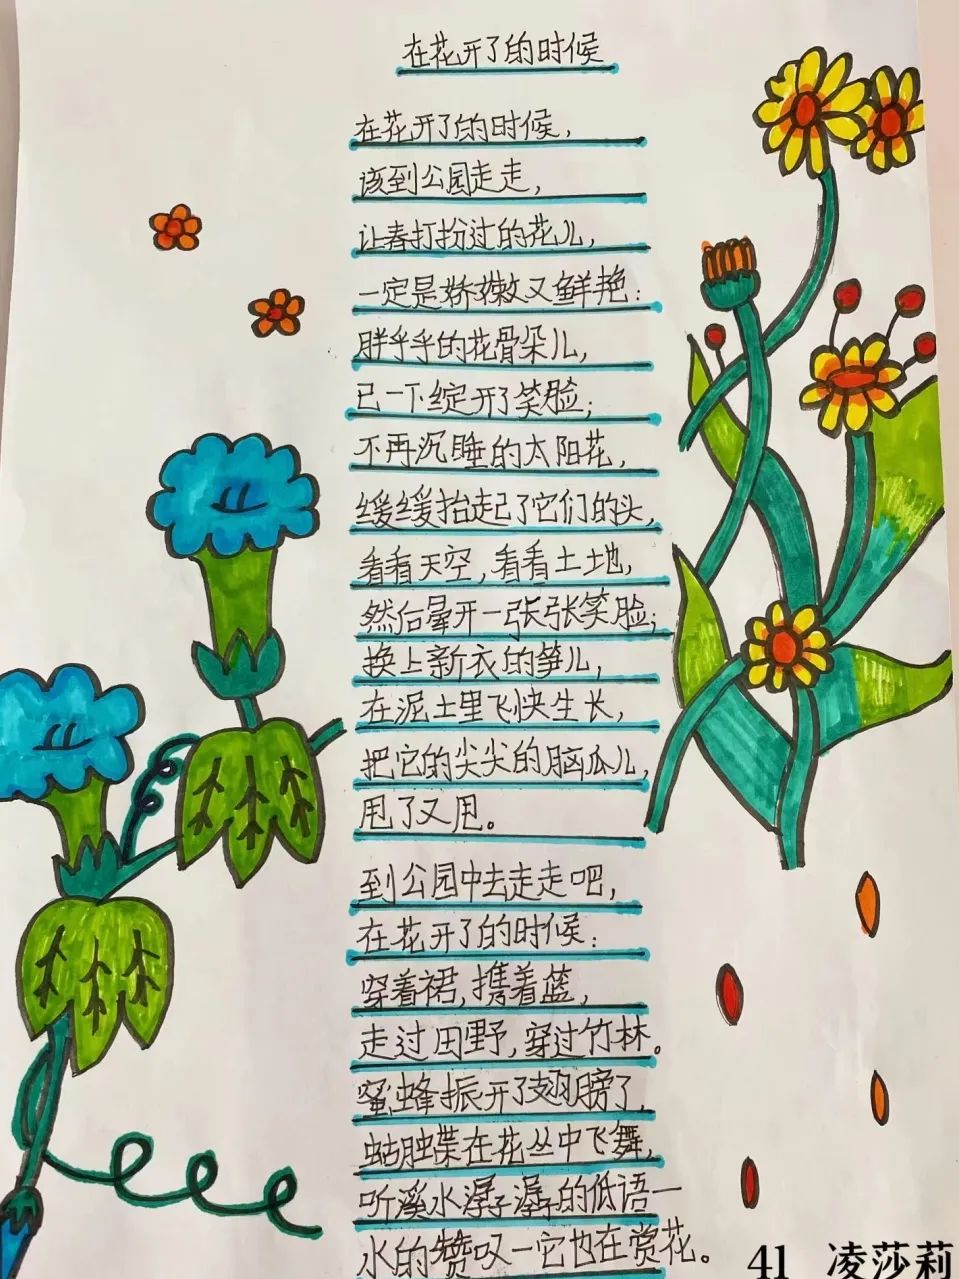 在花开了的时候
在花开了的时候，
该到公园走走，
让春打扮过的花儿，
一定是娇嫩又鲜艳：
胖乎乎的花骨朵儿，
已一下绽开了笑脸；
不再沉睡的太阳花，
缓缓抬起了它们的头，
看看天空，看看土地，
然后晕开一张张笑脸；
换上新衣的笋儿，
在泥土里飞快生长，
把它的尖尖的脑瓜儿，
甩了又甩。
到公园中去走走吧，
在花开了的时候：
穿着裙，携着篮，
走过田野，穿过竹林。
蜜蜂振开了翅膀了，
蝴蝶在花丛中飞舞，
听溪水潺潺的低语一
水的赞叹一它也在赏花。
41 凌莎莉